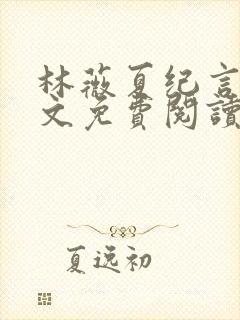 林薇夏纪言
文免費閱讀
夏逸初